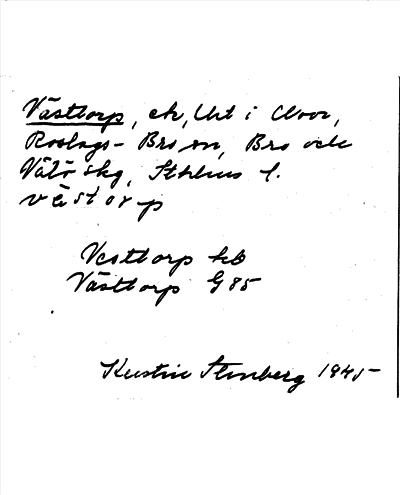 Västtorp, ek, Uht i Cloor,
Roslags-Bro sn, Bro och
Vätö skg, Sthlms l.
västorp
Vesttorp hb
Västtorp G 85
Kerstin Stenberg 1945